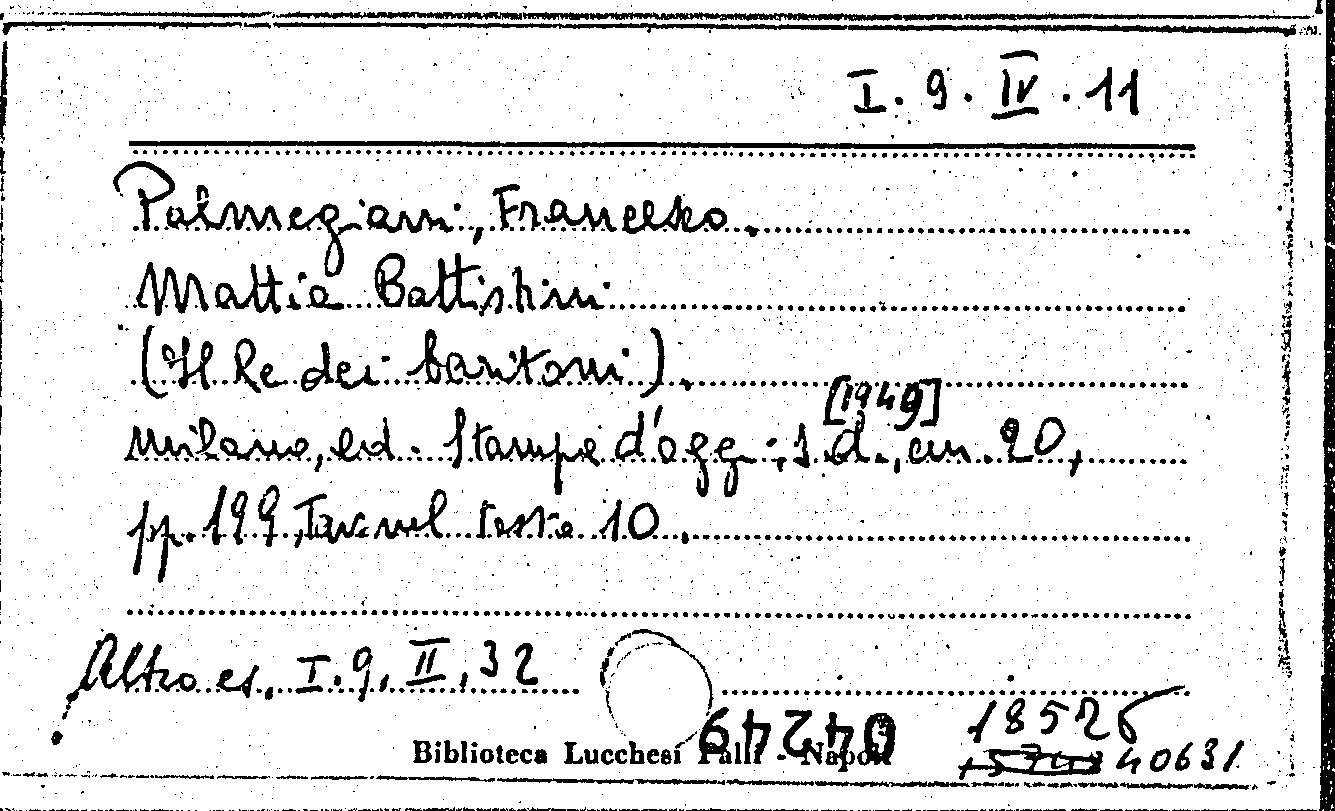 I. 9. IV. 11
Palmegiani, Francesco.
Mattia Battistini
(Il Re dei baritoni).
[1949]
Milano, ed. Stampe d'oggi, s.d., cm. 20,
pp. 199, Tav. nel testo 10.
Altro es. I.9, II, 32
18526
Biblioteca Lucchesi Palli - Napoli
40631